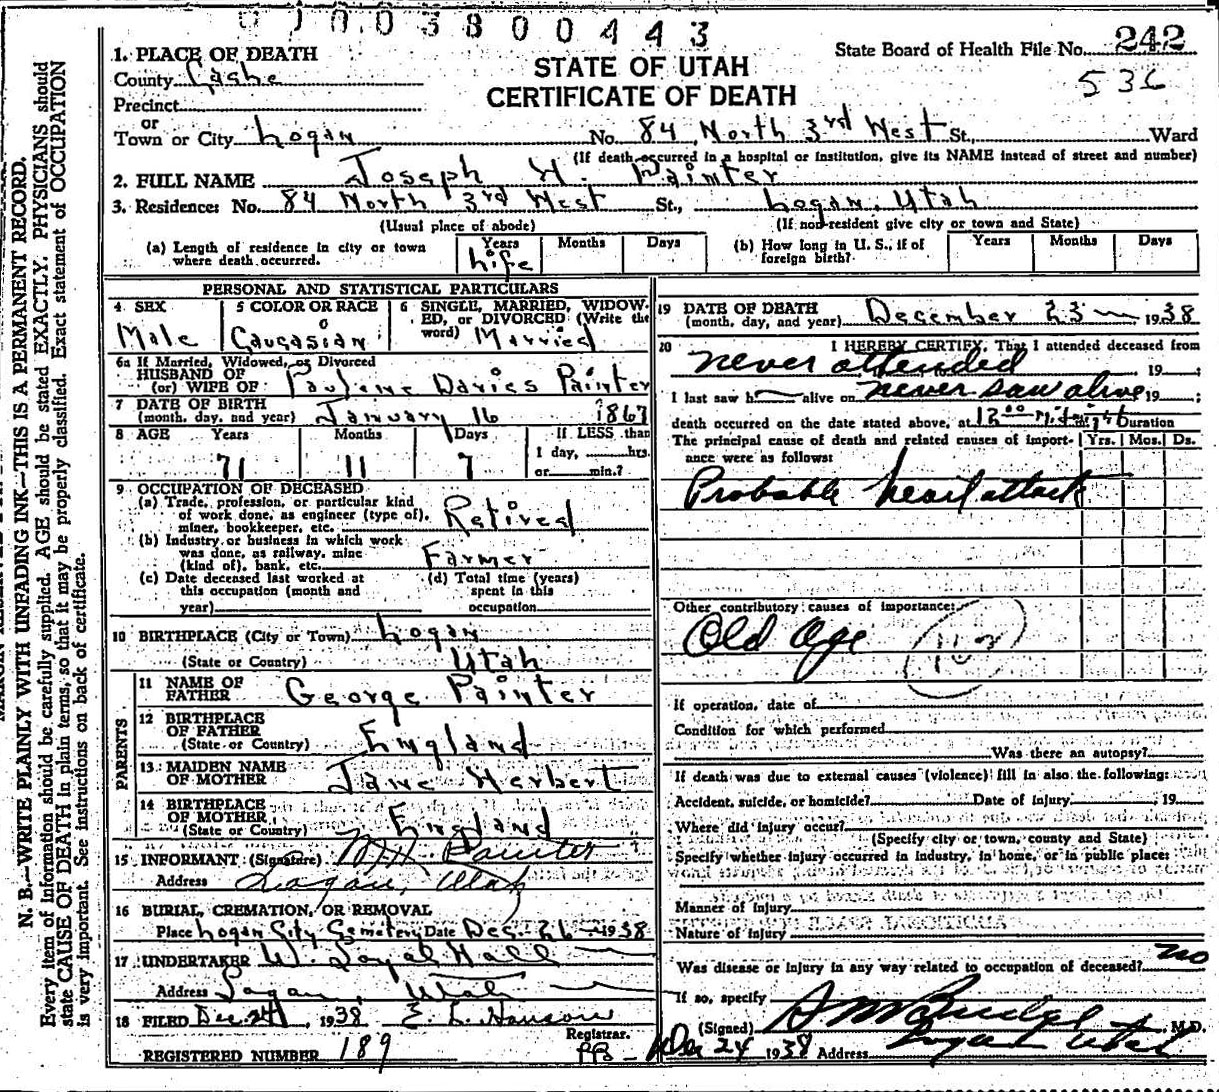 01003800443
State Board of Health File No. 242
536
STATE OF UTAH
CERTIFICATE OF DEATH
1. PLACE OF DEATH
County Cashe
Precinct
or
Town or City Logan No. 84 North 3rd West St., Ward
(If death occurred in a hospital or institution, give its NAME instead of street and number)
2. FULL NAME Joseph H. Painter
3. Residence: No. 84 North 3rd West St., Logan, Utah
(Usual place of abode) (If non-resident give city or town and State)
(a) Length of residence in city or town where death occurred. Years Months Days
Life
(b) How long in U. S., if of foreign birth? Years Months Days
PERSONAL AND STATISTICAL PARTICULARS
4 SEX 5 COLOR OR RACE 6 SINGLE, MARRIED, WIDOW-
ED, or DIVORCED (Write the
word) Married
Male Caucasian
6a If Married, Widowed, or Divorced
HUSBAND OF
(or) WIFE OF Paulene Davies Painter
7 DATE OF BIRTH
(month, day, and year) January 16 1867
8 AGE Years Months Days If LESS than
1 day, hrs.
71 11 7 or min.?
9 OCCUPATION OF DECEASED
(a) Trade, profession, or particular kind
of work done, as engineer (type of),
miner, bookkeeper, etc. Retired
(b) Industry or business in which work
was done, as railway, mine
(kind of), bank, etc. Farmer
(c) Date deceased last worked at
this occupation (month and
year)
(d) Total time (years)
spent in this
occupation
10 BIRTHPLACE (City or Town) Logan
(State or Country) Utah
PARENTS
11 NAME OF
FATHER George Painter
12 BIRTHPLACE
OF FATHER
(State or Country) England
13 MAIDEN NAME
OF MOTHER Jane Herbert
14 BIRTHPLACE
OF MOTHER
(State or Country) England
15 INFORMANT (Signature) Painter
Address Logan, Utah
16 BURIAL, CREMATION, OR REMOVAL
Place Logan City Cemetery Date Dec. 26 1938
17 UNDERTAKER W. Loyal Hall
Address Logan, Utah
18 FILED Dec. 24, 1938 E. L. Hansen
Registrar.
REGISTERED NUMBER 189
19 DATE OF DEATH
(month, day, and year) December 23 1938
20 I HEREBY CERTIFY, That I attended deceased from
never attended 19 ;
I last saw h alive on never saw alive 19 ;
death occurred on the date stated above, at 12 00 Duration
The principal cause of death and related causes of import- Yrs. Mos. Ds.
ance were as follows:
Probable heart attack
Other contributory causes of importance:
Old Age
If operation, date of
Condition for which performed
Was there an autopsy?
If death was due to external causes (violence) fill in also the following:
Accident, suicide, or homicide? Date of injury , 19
Where did injury occur?
(Specify city or town, county and State)
Specify whether injury occurred in industry, in home, or in public place:
Manner of injury
Nature of injury
Was disease or injury in any way related to occupation of deceased? no
If so, specify
(Signed) M.D.
Dec 24 1938 Address Logan Utah
N. B.—WRITE PLAINLY WITH UNFADING INK—THIS IS A PERMANENT RECORD.
Every item of information should be carefully supplied. AGE should be stated EXACTLY. PHYSICIANS should
state CAUSE OF DEATH in plain terms, so that it may be properly classified. Exact statement of OCCUPATION
is very important. See instructions on back of certificate.